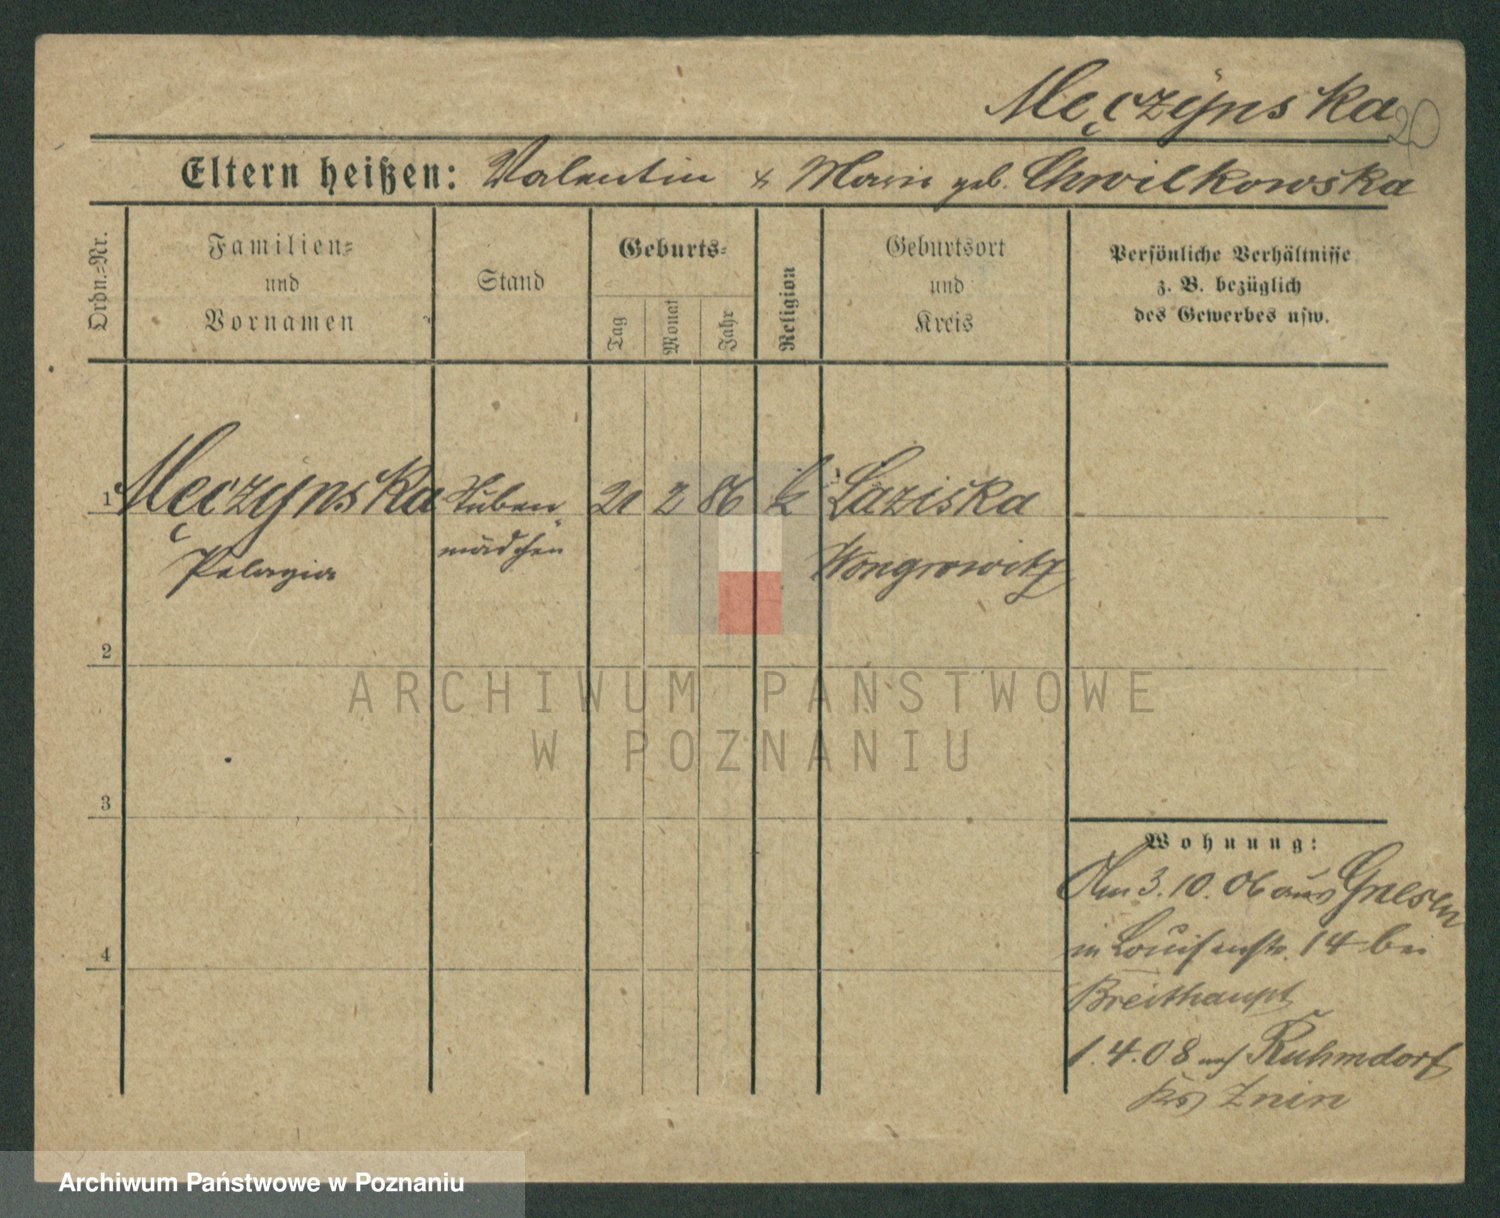 Męczÿnska
20
Eltern heißen: Valentin & Marie geb. Chwilkowska
Ordn.-Nr.
Familien-
und
Vornamen
Stand
Geburts-
Tag
Monat
Jahr
Religion
Geburtsort
und
Kreis
Persönliche Verhältnisse
z. B. bezüglich
des Gewerbes usw.
1 Męczÿnska Stuben 21 2 86 k Laziska
Pelagia mädchen Wongrowitz
2
ARCHIWUM PAŃSTWOWE
W POZNANIU
3
Wohnung:
Am 3.10.06 aus Gnesen
in Louisenstr. 14 bei
4
Breithaupt
1.4.08 nach Ruhmdorf
Krs Znin
Archiwum Państwowe w Poznaniu